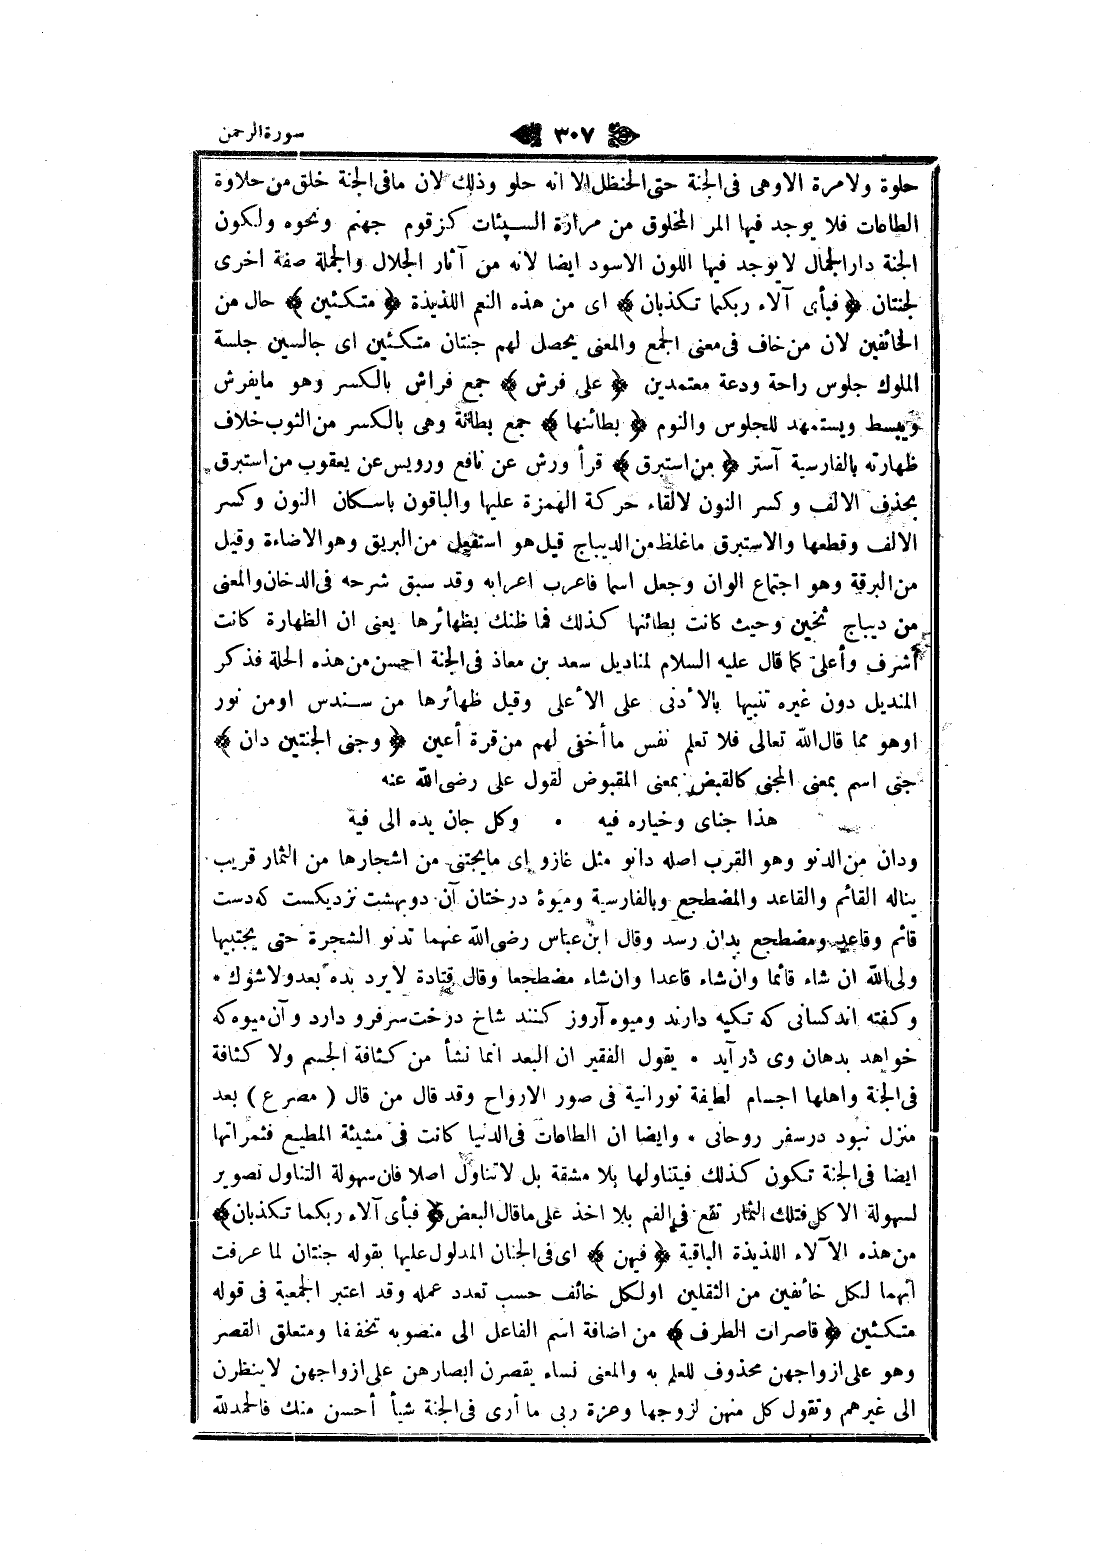 سورة الرحمن
٣٠٧
حلوة ولا مرة الا وهى فى الجنة حتى الحنظل الا انه حلو وذلك لان مافى الجنة خلق من حلاوة
الطاعات فلا يوجد فيها المر المخلوق من مرارة السيئات كزقوم جهنم ونحوه ولكون
الجنة دار الجمال لا يوجد فيها اللون الاسود ايضا لانه من آثار الجلال والجملة صفة اخرى
لجنتان ﴿ فبأى آلاء ربكما تكذبان ﴾ اى من هذه النعم اللذيذة ﴿ متكئين ﴾ حال من
الخائفين لان من خاف فى معنى الجمع والمعنى يحصل لهم جنتان متكئين اى جالسين جلسة
الملوك جلوس راحة ودعة معتمدين ﴿ على فرش ﴾ جمع فراش بالكسر وهو مايفرش
ويبسط ويستمهد للجلوس والنوم ﴿ بطائنها ﴾ جمع بطانة وهى بالكسر من الثوب خلاف
ظهارته بالفارسية آستر ﴿ من استبرق ﴾ قرأ ورش عن نافع ورويس عن يعقوب من استبرق
بحذف الالف وكسر النون لالقاء حركة الهمزة عليها والباقون باسكان النون وكسر
الالف وقطعها والاستبرق ماغلظ من الديباج قيل هو استفعل من البريق وهو الاضاءة وقيل
من البرقة وهو اجتماع الوان وجعل اسما فاعرب اعرابه وقد سبق شرحه فى الدخان والمعنى
من ديباج ثخين وحيث كانت بطائنها كذلك فما ظنك بظهائرها يعنى ان الظهارة كانت
أشرف وأعلى كما قال عليه السلام لمناديل سعد بن معاذ فى الجنة احسن من هذه الحلة فذكر
المنديل دون غيره تنبيها بالأدنى على الأعلى وقيل ظهائرها من سندس اومن نور
اوهو مما قال الله تعالى فلا تعلم نفس ما أخفى لهم من قرة أعين ﴿ وجنى الجنتين دان ﴾
جنى اسم بمعنى المجنى كالقبض بمعنى المقبوض لقول على رضى الله عنه
هذا جناى وخياره فيه • وكل جان يده الى فيه
ودان من الدنو وهو القرب اصله دانو مثل غازو اى مايجتنى من اشجارها من الثمار قريب
يناله القائم والقاعد والمضطجع وبالفارسية وميوهٔ درختان آن دوبهشت نزديكست كه دست
قائم وقاعد ومضطجع بدان رسد وقال ابن عباس رضى الله عنهما تدنو الشجرة حتى يجتنيها
ولى الله ان شاء قائما وان شاء قاعدا وان شاء مضطجعا وقال قتادة لا يرد يده بعد ولا شوك •
وكفته اند كسانى كه تكيه دارند وميوه آرزو كنند شاخ درخت سرفرو دارد وآن ميوه كه
خواهد بدهان وى درآيد • يقول الفقير ان البعد انما نشأ من كثافة الجسم ولا كثافة
فى الجنة واهلها اجسام لطيفة نورانية فى صور الارواح وقد قال من قال ( مصرع ) بعد
منزل نبود درسفر روحانى • وايضا ان الطاعات فى الدنيا كانت فى مشيئة المطيع فثمراتها
ايضا فى الجنة تكون كذلك فيتناولها بلا مشقة بل لا تناول اصلا فان سهولة التناول تصوير
لسهولة الاكل فتلك الثمار تقع فى الفم بلا اخذ على ماقال البعض ﴿ فبأى آلاء ربكما تكذبان ﴾
من هذه الآلاء اللذيذة الباقية ﴿ فيهن ﴾ اى فى الجنان المدلول عليها بقوله جنتان لما عرفت
أنهما لكل خائفين من الثقلين او لكل خائف حسب تعدد عمله وقد اعتبر الجمعية فى قوله
متكئين ﴿ قاصرات الطرف ﴾ من اضافة اسم الفاعل الى منصوبه تخفيفا ومتعلق القصر
وهو على ازواجهن محذوف للعلم به والمعنى نساء يقصرن ابصارهن على ازواجهن لا ينظرن
الى غيرهم وتقول كل منهن لزوجها وعزة ربى ما أرى فى الجنة شيأ أحسن منك فالحمد لله